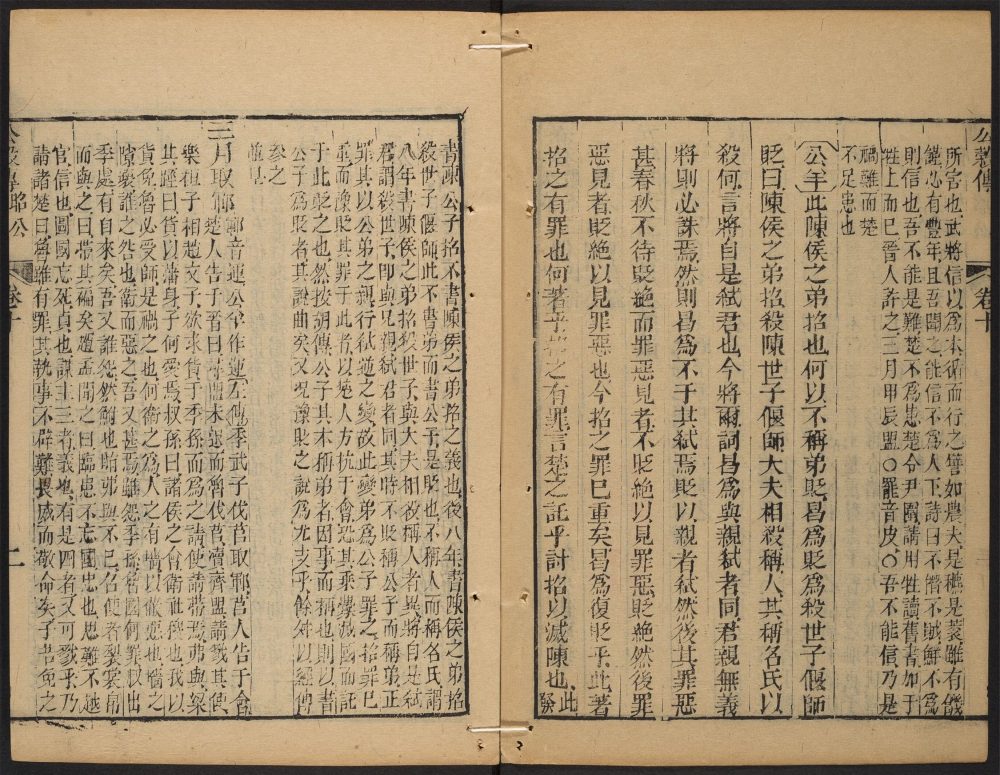 卷十
所害也武將信以爲本循而行之譬如農夫是穮是蓘雖有饑
饉必有豐年且吾聞之能信不爲人下詩曰不僭不賊鮮不爲
則信也吾不能是難楚不爲患楚令尹圍請用牲讀舊書加于
牲上而已晉人許之三月甲辰盟○罷音皮○吾不能信乃是
禍難而楚
不足患也
公羊此陳侯之弟招也何以不稱弟貶曷爲貶爲殺世子偃師
貶曰陳侯之弟招殺陳世子偃師大夫相殺稱人其稱名氏以
殺何言將自是弒君也今將爾詞曷爲與親弒者同君親無
將將則必誅焉然則曷爲不于其弒焉貶以親者弒然後其罪惡
甚春秋不待貶絕而罪惡見者不貶絕以見罪惡貶絕然後罪
惡見者貶絕以見罪惡也今招之罪已重矣曷爲復貶乎此著
招之有罪也何著乎招之有罪言楚之託乎討招以滅陳也此發
書陳公子招不書陳侯之弟招之義也後八年書陳侯之弟招
殺世子偃師此不書弟而書公子是貶也不稱人而稱名氏謂
八年書陳侯之弟招殺世子與大夫相殺稱人者異將自是弒
君謂殺世子即與親弒君者同其時不貶稱公子而稱弟正
罪其以公弟之親行弒逆之變故此變弟爲公子罪之招罪已
重而豫貶其罪于此者以楚人方抗于會
于此貶之也然按胡傳公子其本稱弟者因事而稱也則以書
公子爲貶者
參之
三月取鄆鄆音運公羊作運左傳季武子伐莒取鄆莒人告于會
楚人告于晉曰尋盟未退而魯伐莒瀆齊盟請戮其使
樂桓子相趙文子欲求貨于叔孫而爲之請使請帶焉弗與梁
其踁曰貨以藩身子何愛焉叔孫曰諸侯之會衛社稷也我以
貨免魯必受師是禍之也何衛之爲人之有牆以蔽惡也牆之
隙壞誰之咎也衛而惡之吾又甚焉雖怨季孫魯國何罪叔出
季處有自來矣吾又誰怨然鮒也賄弗與不已召使者裂裳帛
而與之曰帶其褊矣趙孟聞之曰臨患不忘國忠也思難不越
官信也圖國忘死貞也謀主三者義也有是四者又可戮乎乃
請諸楚曰魯雖有罪其執事不辟難畏威而敬命矣子若免之
卷十